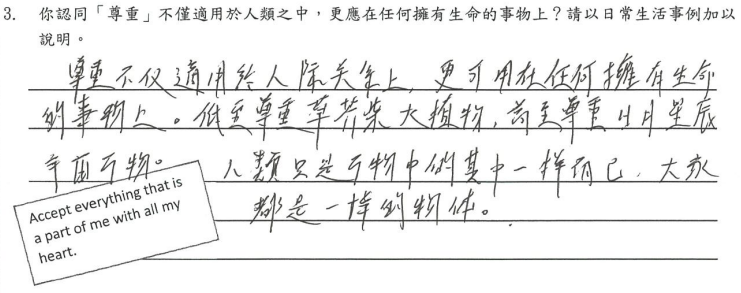 3. 你認同「尊重」不僅適用於人類之中，更應在任何擁有生命的事物上？請以日常生活事例加以
說明。
尊重不仅適用於人际关係上，更可用在任何擁有生命
的事物上。低至尊重草芥柴木植物，高至尊重日月星辰
宇宙万物。 人類只是万物中的其中一样而已，大家
都是一样的物体。
Accept everything that is
a part of me with all my
heart.